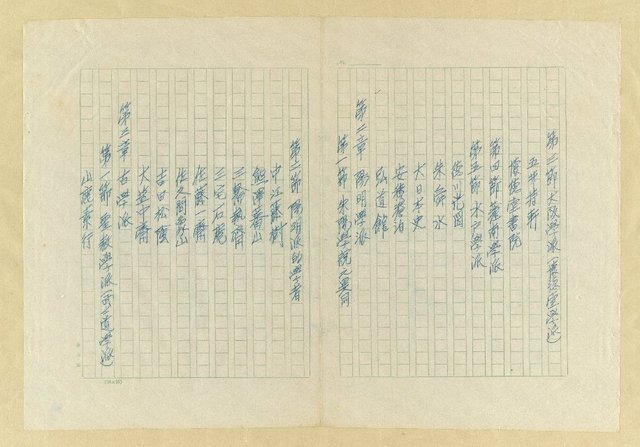 第三節 大阪學派(懷德堂學派)
五井持軒
懷德堂書院
第四節 薩南學派
第五節 水戶學派
德川光圀
朱舜水
大日本史
安積澹泊
弘道館
第二章 陽明學派
第一節 朱陽學說之異同
第二節 陽明派的學者
中江藤樹
熊澤蕃山
三輪執齋
三宅石庵
佐藤一齋
佐久間象山
吉田松陰
大塩中齋
第三章 古學派
第一節 聖教學派(武士道學派)
山鹿素行